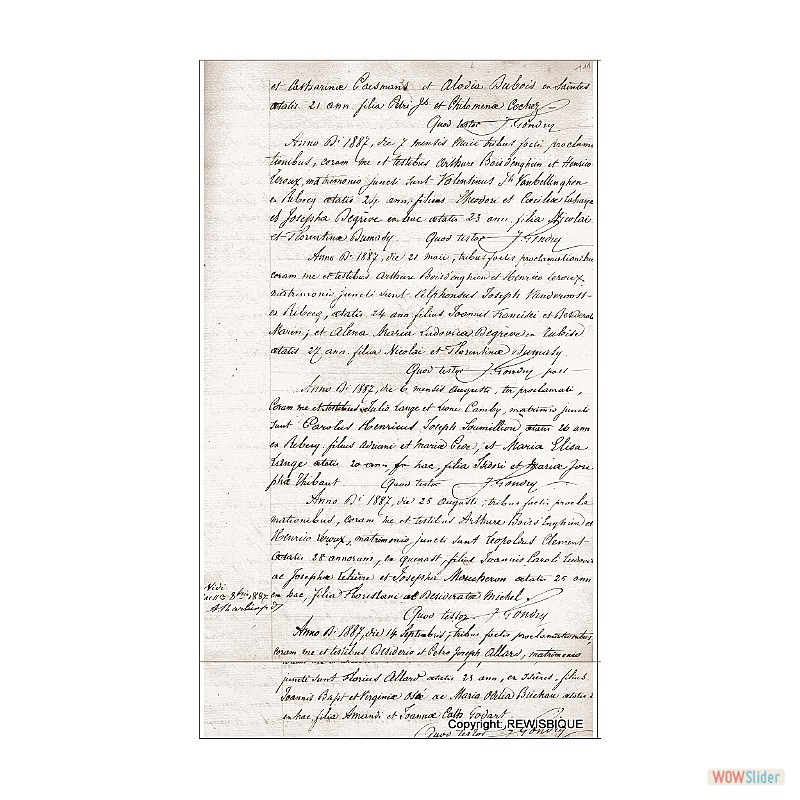 111
et Catharinæ Caesmans et Alodia Dubois en Saintes
ætatis 21 ann filia Petri Js et Philomenæ Cochez
Quod testor J. Gondry
Anno Di 1887, die 7 mensis Maii tribus factis proclama
tionibus, coram me et testibus Arthuro Boisdenghien et Henrico
Leroux, matrimonio juncti sunt Valentinus Jh Vanbellinghen
ex Rebecq ætatis 24 ann. filius Theodori et Cæciliæ
et Josepha Degreve en hac ætatis 23 ann. filia Nicolai
et Florentinæ Dumady. Quod testor J. Gondry
Anno Di 1887, die 21 maii, tribus factis proclamationibus
coram me et testibus Arthuro Boisdenghien et Henrico Leroux,
matrimonii juncti sunt Alphonsus Joseph Vandervost
ex Rebecq, ætatis 24 ann filius Joannis Francisci et
Marin; et Alena Maria Ludovica Degreve en
ætatis 27 ann. filia Nicolai et Florentinæ Dumady
Quod testor J. Gondry past
Anno Di 1887, die 6 mensis augusti, ter proclamati,
Coram me et testibus Julio Lange et Leone Camby, matrimio juncti
sunt Carolus Henricus Joseph Soumillion ætatis 26 ann
ex Rebecq filius Adriani et Maria et Maria Elisa
Lange ætatis 20 ann ex hac, filia Isidori et Maria Jose
phæ Thibaut Quod testor J. Gondry
Anno Di 1887, die 25 augusti, tribus factis procla
mationibus, coram me et testibus Arthuro Boisd'Enghien et
Henrico Leroux, matrimonio juncti sunt Leopoldus Clement
ætatis 28 annorum, ex quenast, filius Joannis Caroli Ludovici
ac Josephæ Lelièvre et Josepha Moucheron ætatis 25 ann
en hac, filia Florestani ac Desideratæ Michel
Vidi
8bris 1887
Quod testor J. Gondry
Anno Di 1887, die 14 Septembris, tribus factis proclamationibus,
coram me et testibus Desiderio et Petro Joseph Allard, matrimonio
juncti sunt Florius Allard ætatis 23 ann, ex Isières, filius
Joannis Bapt et Virginiæ ac Maria Otelia Buchau ætatis 2
en hac filia Amandi et Joannæ Cath Godart
Copyright, REWISBIQUE
Quod testor J. Gondry
WOWSlider